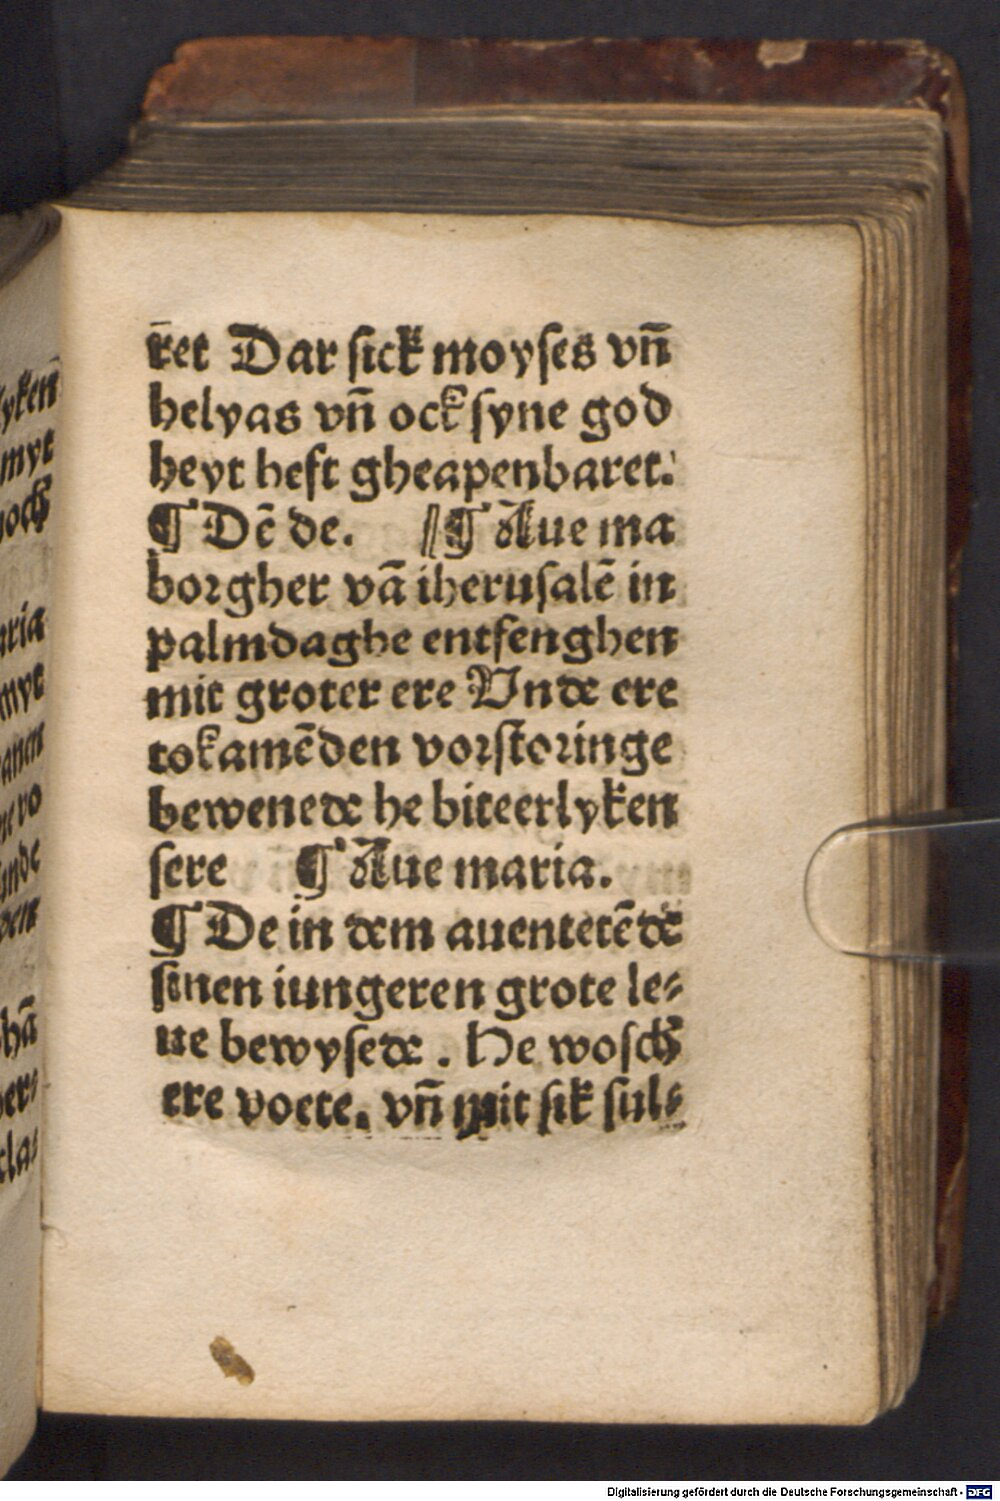 ret Dar sick moyses vn̄
helyas vn̄ ock syne god
heyt heft gheapenbaret.
¶ Dē de. ‖ ¶ Aue ma
borgher vā iherusalē in
palmdaghe entfenghen
mit groter ere Vnde ere
tokamēden vorstoringe
bewenede he biteerlyken
sere ¶ Aue maria.
¶ De in dem auentetē de
sinen iungeren grote le⸗
ue bewysede . He wosch
ere voete. vn̄ mit sik sul⸗
Digitalisierung gefördert durch die Deutsche Forschungsgemeinschaft - DFG